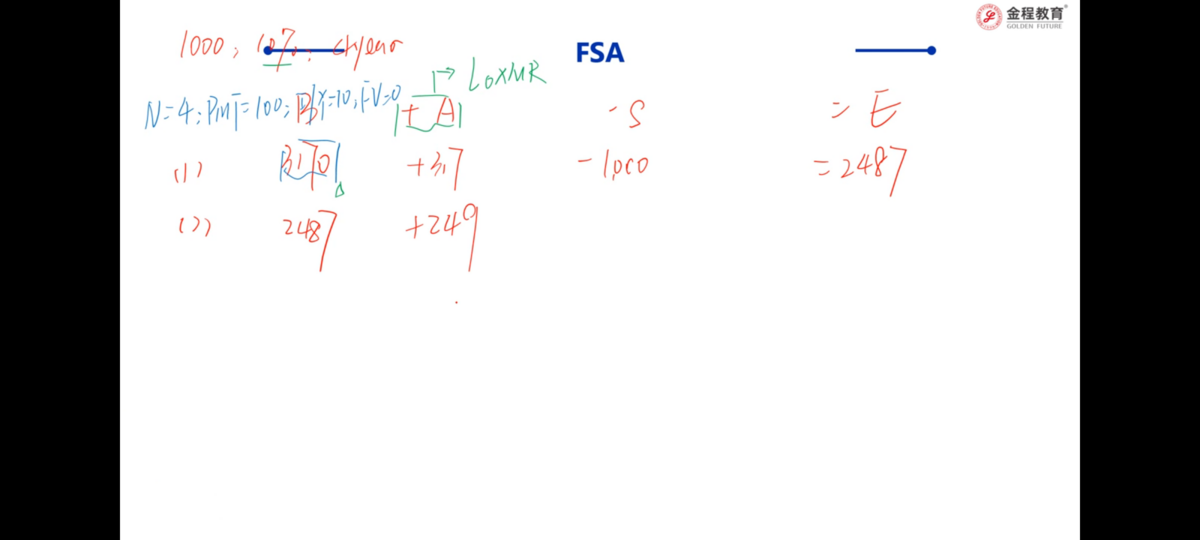 金程教育
GOLDEN FUTURE
1000, 10%, 4year
FSA
LoxMR
N=4; PMT=100; I/Y=10, FV=0
B + A - S = E
(1) 3170 +317 -1,000 =2487
(2) 2487 +249